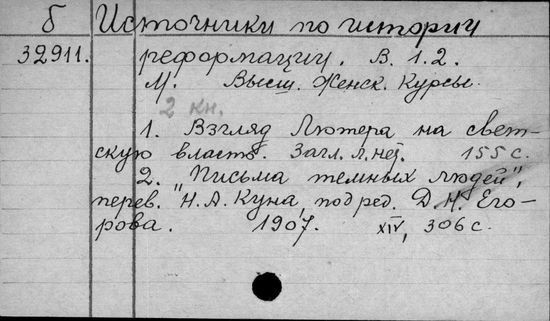 б Источники по истории
32911. реформации. В. 1.2.
М. Высш. Женск. Курсы.
2 кн.
1. Взгляд Лютера на свет-
скую власть. Загл. л. нет. 155 с.
2. "Письма темных людей",
перев. Н. А. Куна, под ред. Д. Н. Его-
рова. 1907. XIV, 306 с.